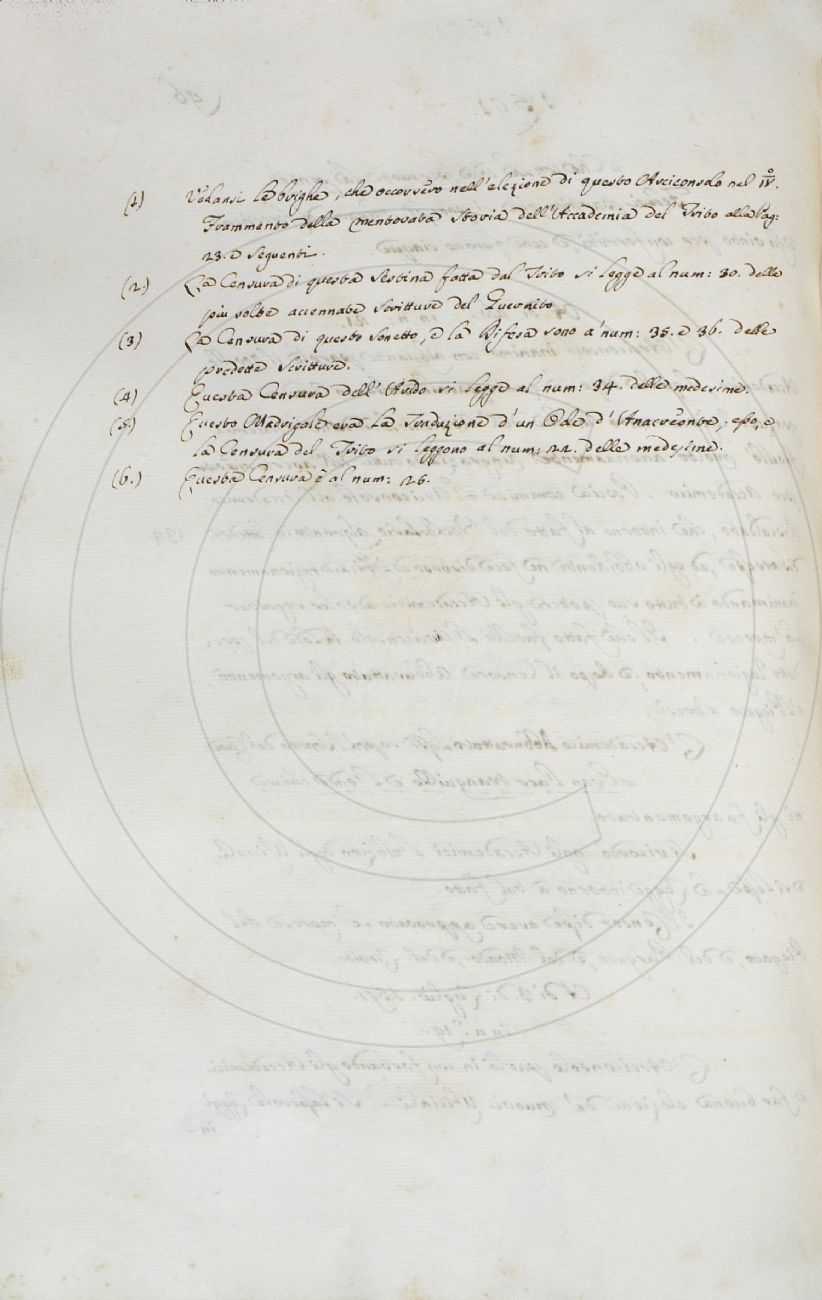 (1) Vedansi le brighe, che occorsero nell'elezione di questo Arciconsolo nel IV.º
Frammento della mentovata Storia dell'Accademia del Trito alla Pag:
23. e seguenti.
(2.) La Censura di questa Sestina fatta dal Trito si legge al num: 30. delle
piu volte accennate Scritture del Guernito
(3) La Censura di questo Sonetto, e la Difesa sono a' num: 35. e 36. delle
predette Scritture.
(4) Questa Censura dell'Arido si legge al num: 34. delle medesime.
(5.) Questo Madrigale era la Traduzione d'un Ode d'Anacreonte, esso, e
la Censura del Trito si leggono al num: 22. delle medesime.
(6.) Questa Censura è al num: 26.